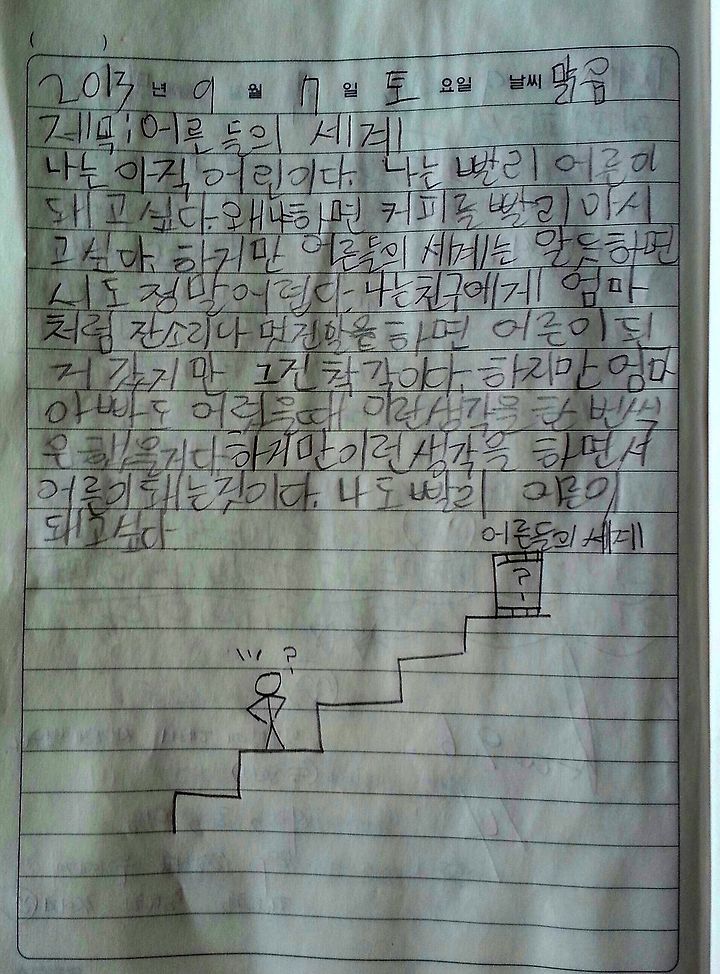 ( )
2013 년 9 월 7 일 토 요일 날씨 맑음
제목:어른들의 세계
나는 아직 어린이다. 나는 빨리 어른이
돼고싶다. 왜냐하면 커피를 빨리 마시
고싶다. 하지만 어른들의 세계는 알듯하면
서도 정말어렵다. 나는친구에게 엄마
처럼 잔소리나 멋진말을 하면 어른이 된
거 같지만 그건착각이다. 하지만 엄마
아빠도 어렸을때 이런생각을 한 번씩
은 했을거다 하지만이런 생각을 하면서
어른이돼는것이다. 나도빨리 어른이
돼고싶다.
어른들의 세계
?
!
''' ?